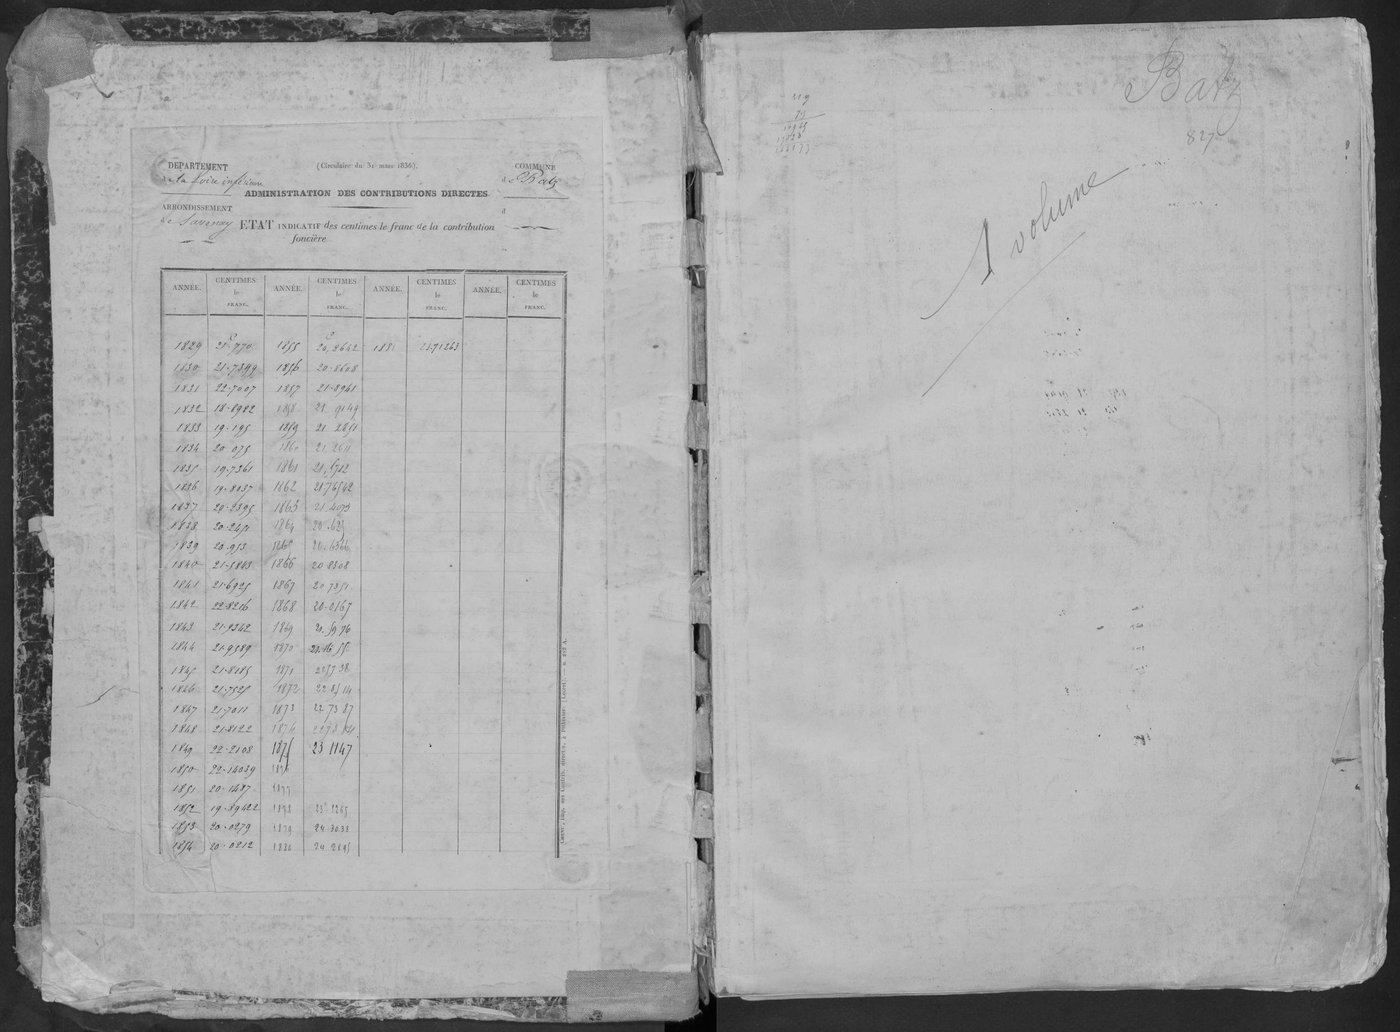 DÉPARTEMENT
de la Loire inférieure
(Circulaire du 31 mars 1836).
COMMUNE
de Batz
ADMINISTRATION DES CONTRIBUTIONS DIRECTES
ARRONDISSEMENT
de Savenay
ETAT INDICATIF des centimes le franc de la contribution
foncière
ANNÉE. CENTIMES le FRANC. ANNÉE. CENTIMES le FRANC. ANNÉE. CENTIMES le FRANC. ANNÉE. CENTIMES le FRANC.
1829 21.770 1855 20,8642 1881 23.71263
1830 21.7399 1856 20.8608
1831 22.7007 1857 21.8941
1832 18.8982 1858 21 9149
1833 19.195 1859 21 2451
1834 20.075 1860
1835 19.7361 1861
1836 19.8037 1862
1837 20.2395 1863 21 4073
1838 20.2451 1864 20.625
1839 20.953 1865 20.6366
1840 21.5803 1866 20 8308
1841 21.6925 1867 20 7351
1842 22.8216 1868 20.0167
1843 21.8342 1869 20.5976
1844 21.9589 1870
1845 21.8085 1871
1846 21.7525 1872 22 8514
1847 21.7011 1873 22 73 87
1848 21.8122 1874
1849 22.2108 1875 23 1147
1850 22.14039 1876
1851 20.1487 1877
1852 19.89422 1878 23 1265
1853 20.0279 1879 24 3033
1854 20.0212 1880 24 2895
Batz
827
1 volume